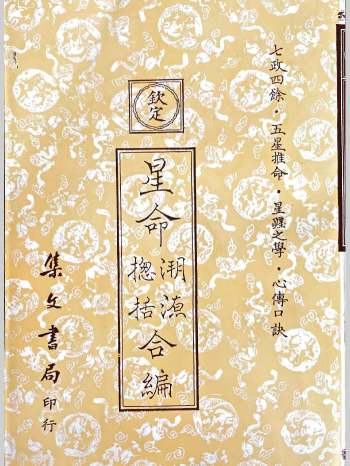 七政四餘・五星推命・星躔之學・心傳口訣
欽定
星命
溯源
揔括
合編
集文書局印行